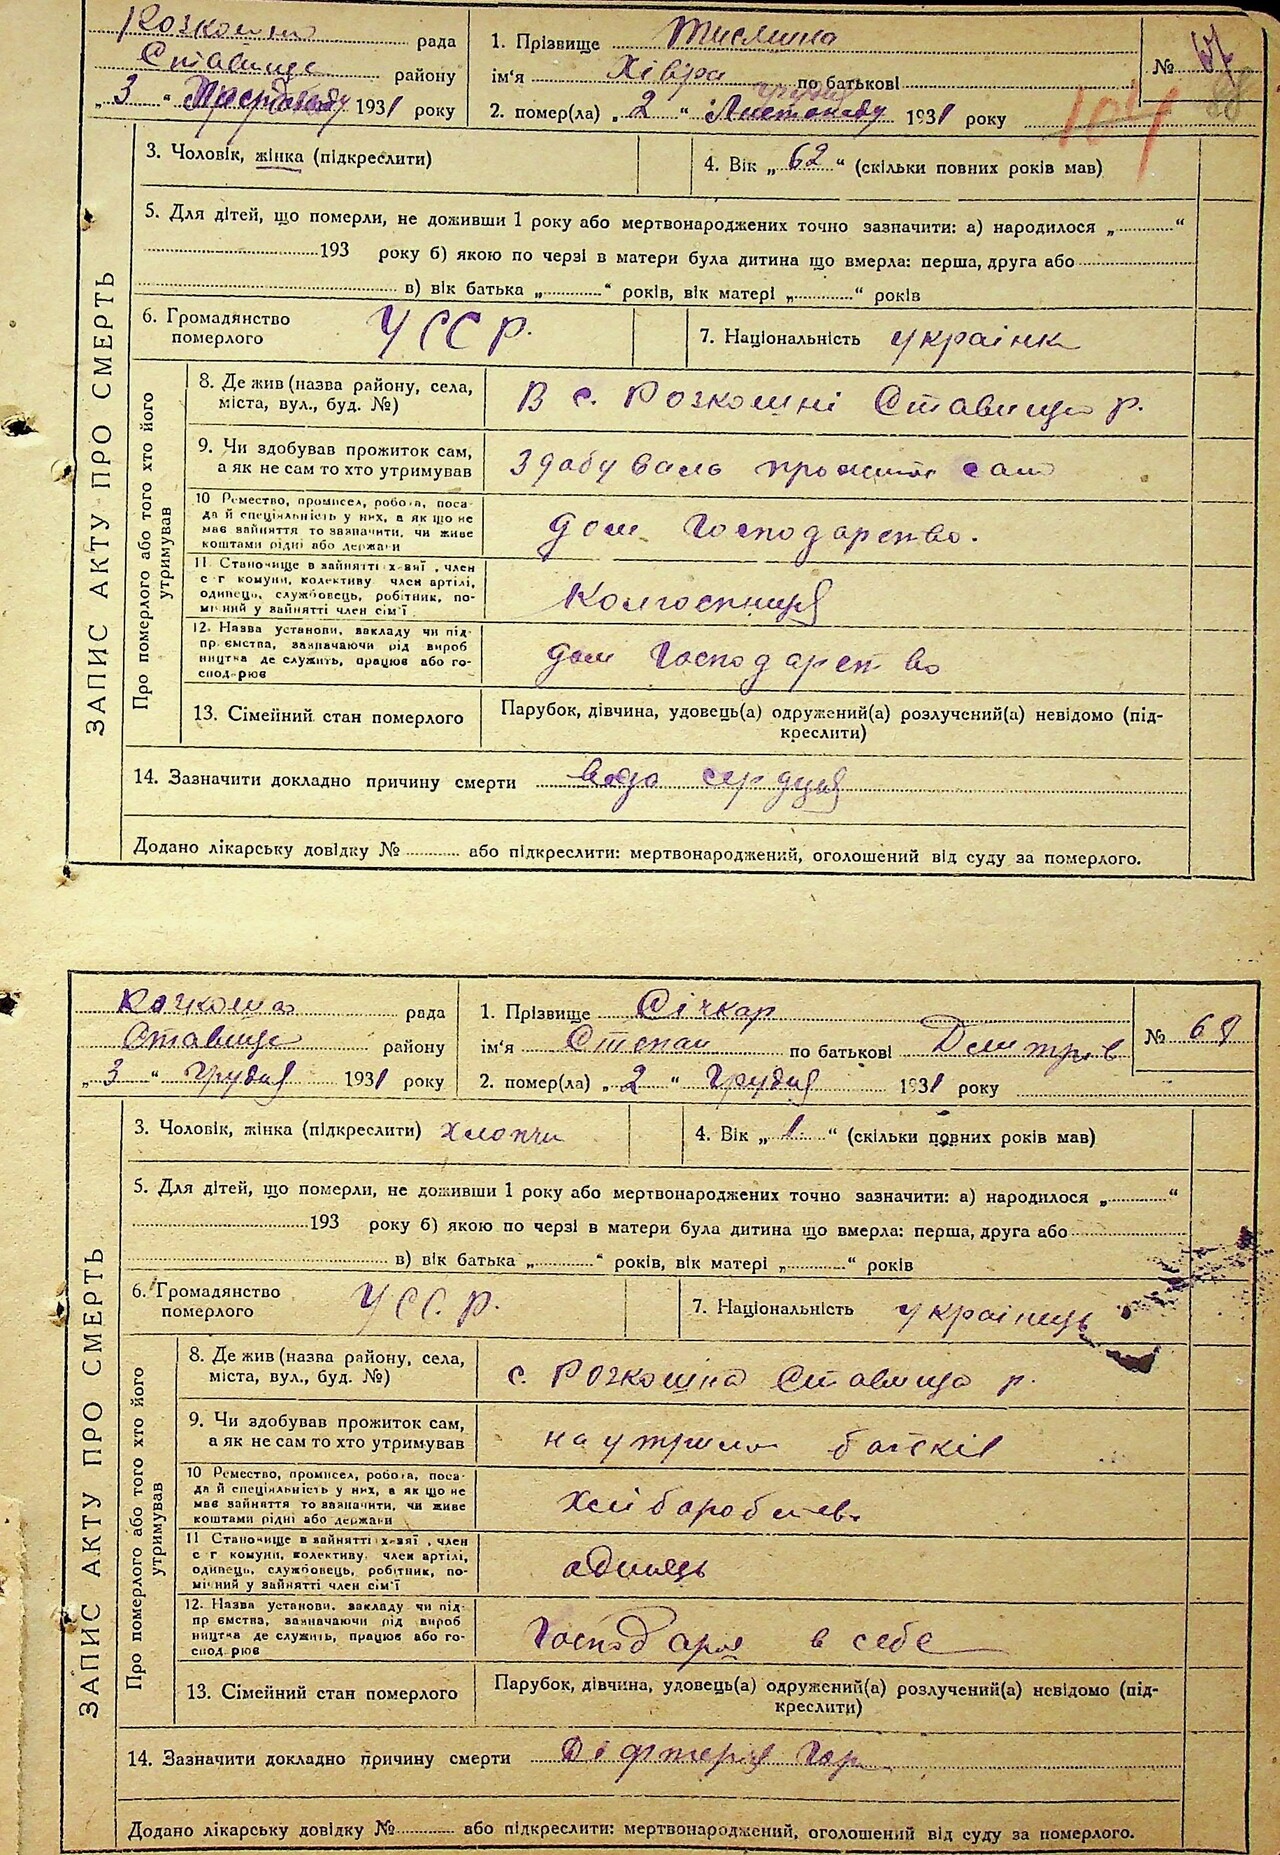 Розкошна рада
Ставище району
„ 3 “ 1931 року
1. Прізвище
ім‘я Хівра по батькові
2. помер(ла) „ 2 “ Листопаду грудня 1931 року
№ 67
104
3. Чоловік, жінка (підкреслити)
4. Вік „ 62 “ (скільки повних років мав)
5. Для дітей, що померли, не доживши 1 року або мертвонароджених точно зазначити: а) народилося „ “
193 року б) якою по черзі в матери була дитина що вмерла: перша, друга або
в) вік батька „ “ років, вік матері „ “ років
6. Громадянство
померлого
УССР.
7. Національність украінка
ЗАПИС АКТУ ПРО СМЕРТЬ
Про померлого або того хто його
утримував
8. Де жив (назва району, села,
міста, вул., буд. №)
В с. Розкошні Ставище р.
9. Чи здобував прожиток сам,
а як не сам то хто утримував
здабуваль прожиток сам
10 Ремество, промисел, робота, поса-
да й спеціяльність у них, а як що не
має зайняття то зазначити, чи живе
коштами рідні або держави
дом Господарство.
11 Становище в зайнятті х-вяї, член
с г комуни, колективу член артілі,
одинець, службовець, робітник, по-
мічний у зайнятті член сім‘ї
Колгоспниця
12. Назва установи, закладу чи під-
пр ємства, зазначаючи рід вироб
ництва де служить, працює або го-
сподарює
дом Господарство
13. Сімейний стан померлого
Парубок, дівчина, удовець(а) одружений(а) розлучений(а) невідомо (під-
креслити)
14. Зазначити докладно причину смерти вада сердця
Додано лікарську довідку № або підкреслити: мертвонароджений, оголошений від суду за померлого.
Розкошна рада
Ставище району
„ 3 “ Грудня 1931 року
1. Прізвище Січкар
ім‘я Степан по батькові Дмитрів
2. помер(ла) „ 2 “ Грудня 1931 року
№ 68
3. Чоловік, жінка (підкреслити) хлопчи
4. Вік „ 1 “ (скільки повних років мав)
5. Для дітей, що померли, не доживши 1 року або мертвонароджених точно зазначити: а) народилося „ “
193 року б) якою по черзі в матери була дитина що вмерла: перша, друга або
в) вік батька „ “ років, вік матері „ “ років
6. Громадянство
померлого
УСС.Р.
7. Національність украінець
ЗАПИС АКТУ ПРО СМЕРТЬ
Про померлого або того хто його
утримував
8. Де жив (назва району, села,
міста, вул., буд. №)
с. Розкошна Ставище р.
9. Чи здобував прожиток сам,
а як не сам то хто утримував
на утрим батьків
10 Ремество, промисел, робота, поса-
да й спеціяльність у них, а як що не
має зайняття то зазначити, чи живе
коштами рідні або держави
11 Становище в зайнятті х-вяї, член
с г комуни, колективу член артілі,
одинець, службовець, робітник, по-
мічний у зайнятті член сім‘ї
адинець
12. Назва установи, закладу чи під-
пр ємства, зазначаючи рід вироб
ництва де служить, працює або го-
сподарює
Господарює в себе
13. Сімейний стан померлого
Парубок, дівчина, удовець(а) одружений(а) розлучений(а) невідомо (під-
креслити)
14. Зазначити докладно причину смерти Діфтерія Гор
Додано лікарську довідку № або підкреслити: мертвонароджений, оголошений від суду за померлого.